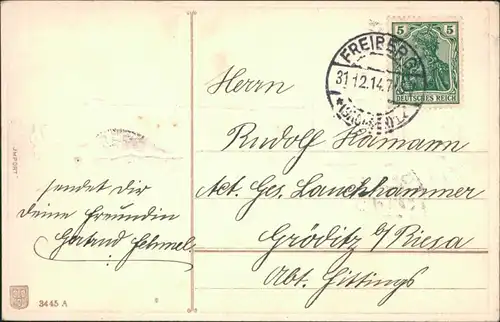 5 5
DEUTSCHES REICH
FREIBERG
31.12.14.7
Herrn
Rudolf Hamann
Act. Ges. Lauchhammer
Gröditz b/Riesa
Abt. Fittings
sendet dir
deine Freundin
Gertrud
IMPORT
3445 A